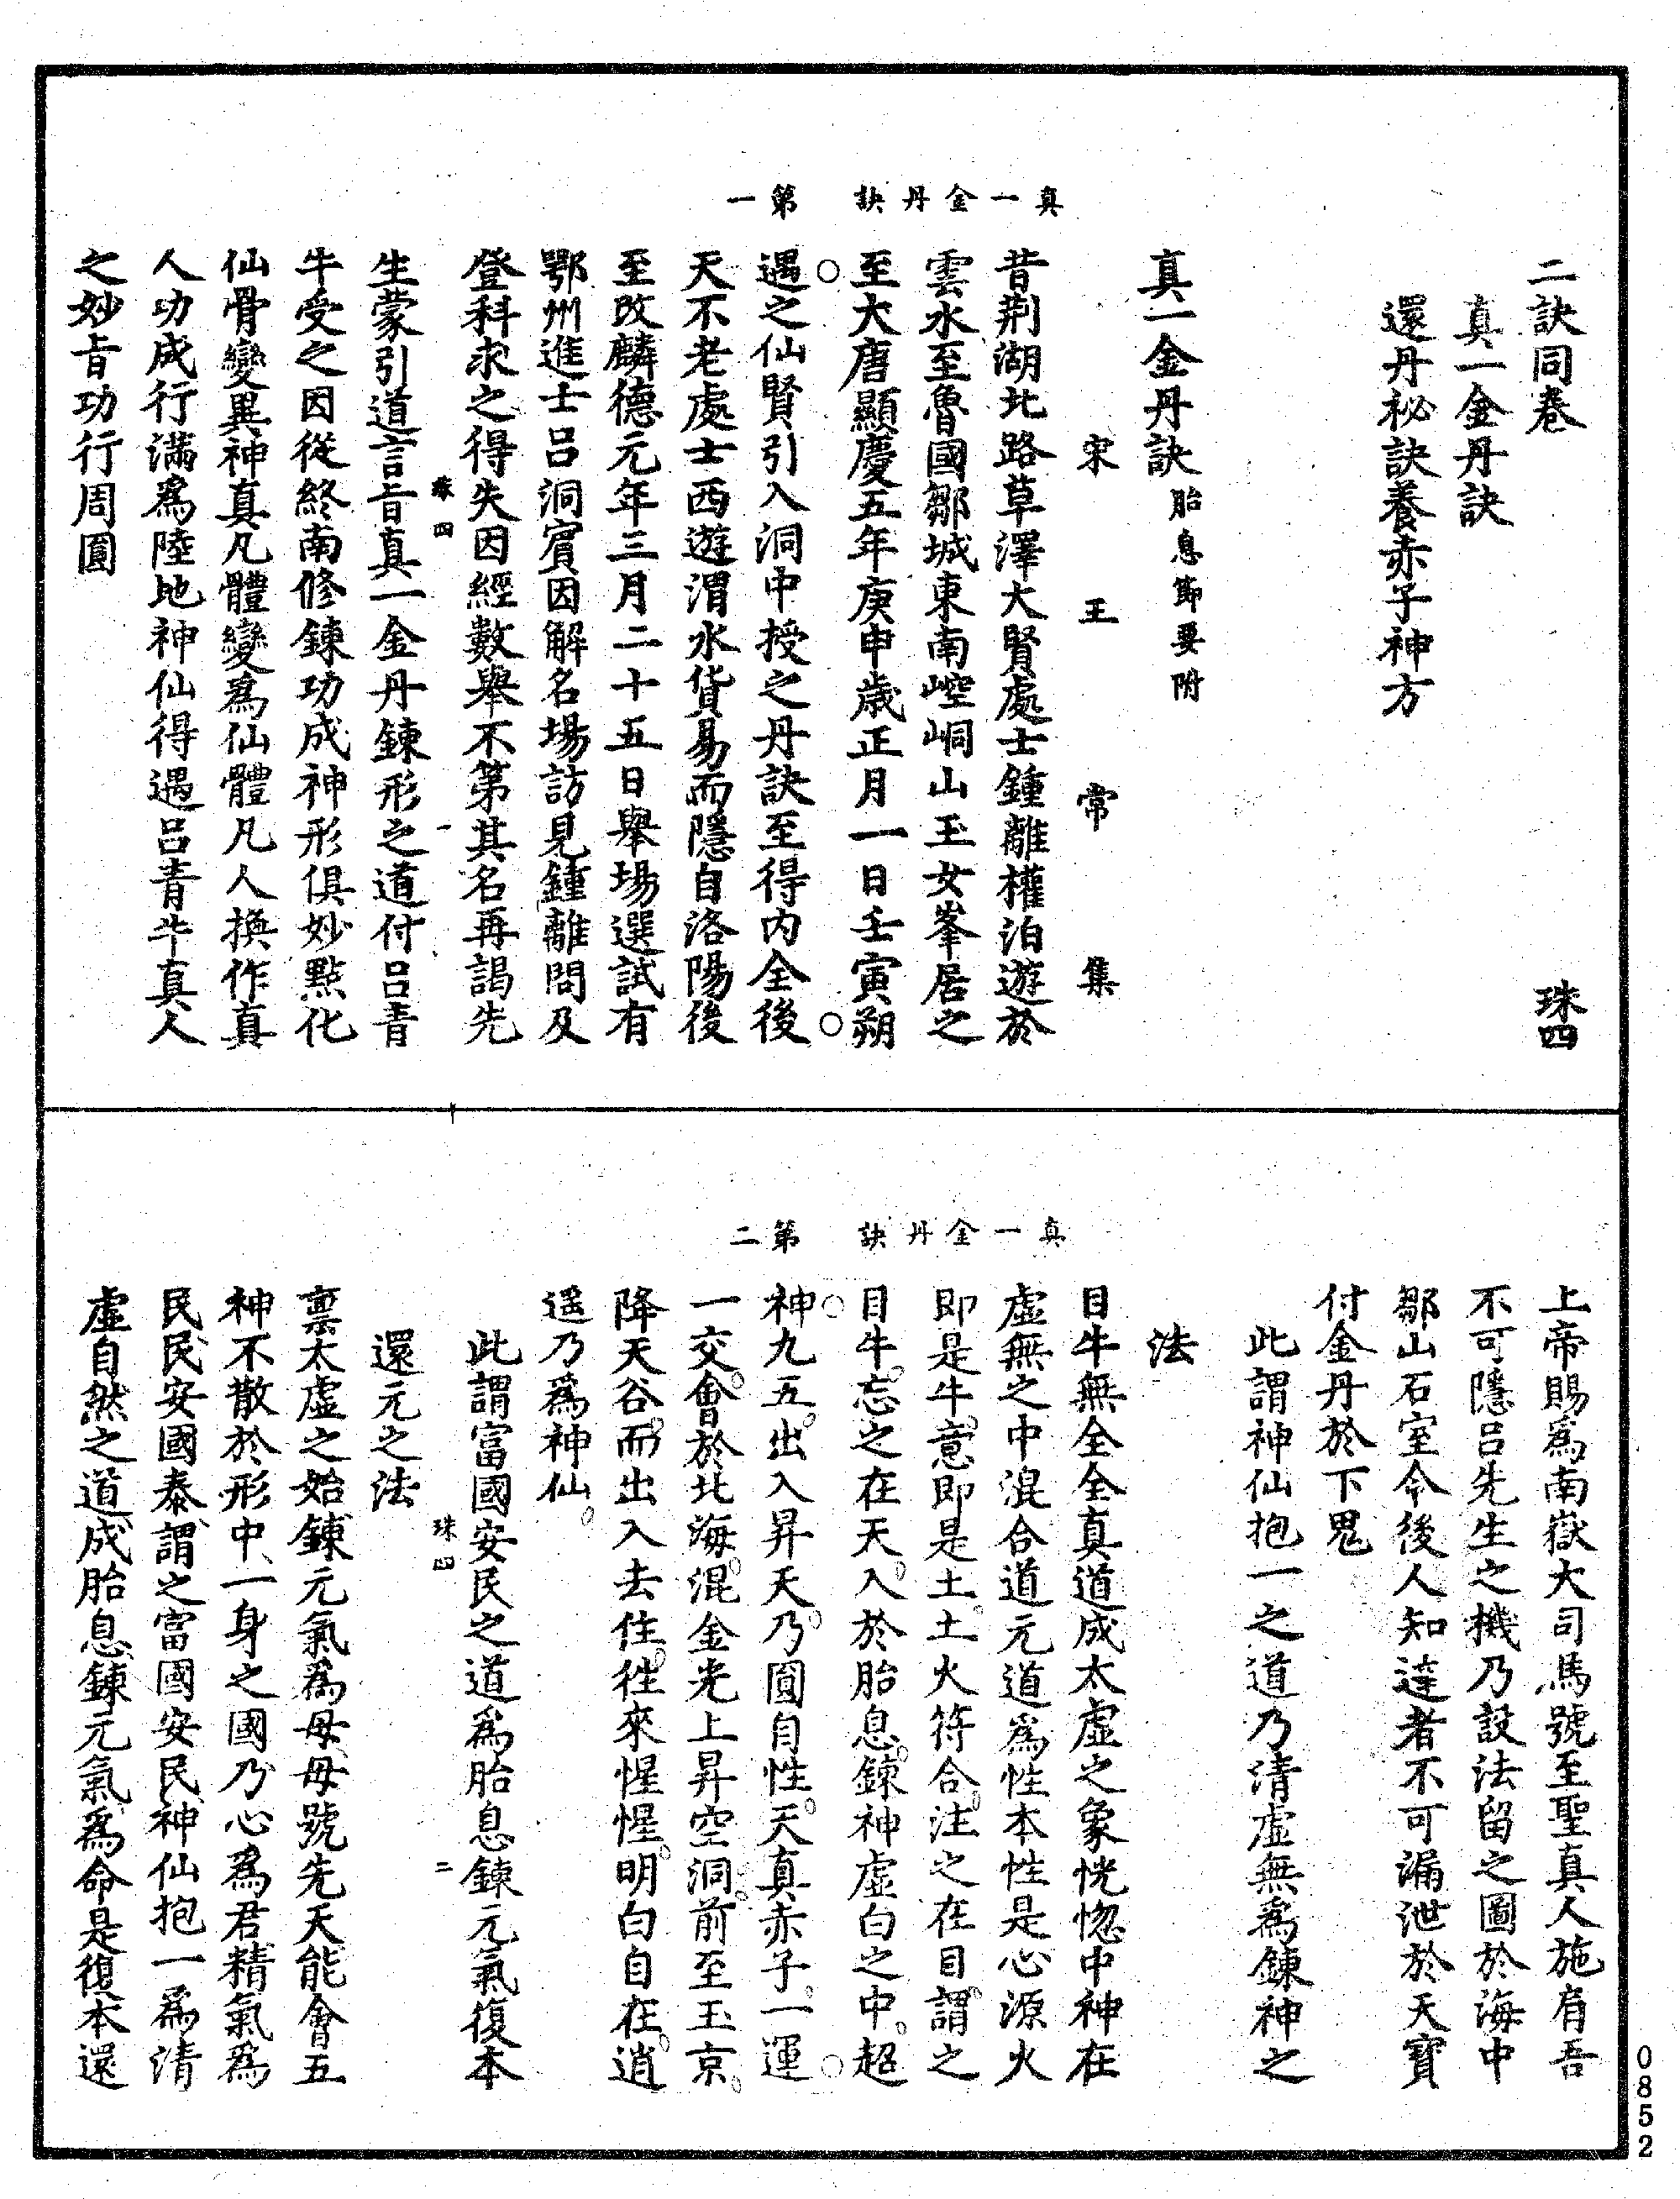 二訣同卷 珠四
真一金丹訣
還丹祕訣養赤子神方
真一金丹訣 胎息節要附
宋王常集
昔荆湖北路草澤大賢處士鍾離權泊遊於
雲水至魯國鄒城東南崆峒山玉女峯居之
至大唐顯慶五年庚申歲正月一日壬寅朔
真一金丹訣 第一
遇之仙賢引入洞中授之丹訣至得内全後
天不老處士西遊渭水貨易而隱自洛陽後
至改麟德元年三月二十五日舉場選試有
鄂州進士呂洞賓因解名場訪見鍾離問及
登科求之得失因經數舉不第其名再謁先
珠四 一
生蒙引道言旨真一金丹鍊形之道付呂青
牛受之因從終南修鍊功成神形俱妙點化
仙骨變異神真凡體變爲仙體凡人換作真
人功成行滿爲陸地神仙得遇呂青牛真人
之妙旨功行周圓
上帝賜爲南嶽大司馬號至聖真人施肩吾
不可隱呂先生之機乃設法留之圖於海中
鄒山石室令後人知達者不可漏泄於天寶
付金丹於下鬼
此謂神仙抱一之道乃清虛無爲鍊神之
法
目牛無全全真道成太虛之象恍惚中神在
虛無之中混合道元道爲性本性是心源火
即是牛意即是土土火符合注之在目謂之
目牛忘之在天入於胎息鍊神虛白之中超
真一金丹訣 第二
神九五出入昇天乃圓自性天真赤子一運
一交會於北海混金光上昇空洞前至玉京
降天谷而出入去住徃來惺惺明白自在逍
遥乃爲神仙
此謂富國安民之道爲胎息鍊元氣復本
珠四 二
還元之法
禀太虛之始鍊元氣爲母母號先天能會五
神不散於形中一身之國乃心爲君精氣爲
民民安國泰謂之富國安民神仙抱一爲清
虛自然之道成胎息鍊元氣爲命是復本還
0852